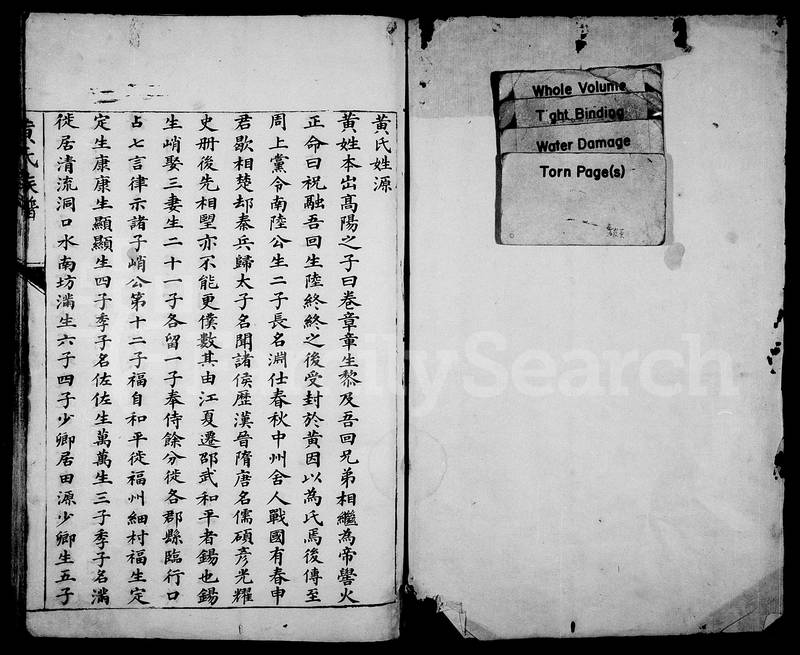 黃氏姓源
黃姓本出高陽之子曰卷章章生黎及吾回兄弟相繼為帝嚳火
正命曰祝融吾回生陸終終之後受封於黃因以為氏焉後傳至
周上黨令南陸公生二子長名淵仕春秋中州舍人戰國有春申
君歇相楚却秦兵歸太子名聞諸侯歷漢晉隋唐名儒碩彥光耀
史册後先相望亦不能更僕數其由江夏遷邵武和平者錫也錫
生峭娶三妻生二十一子各留一子奉侍餘分徙各郡縣臨行口
占七言律示諸子峭公第十二子福自和平徙福州細村福生定
定生康康生顯顯生四子季子名佐佐生萬萬生三子季子名滿
徙居清流洞口水南坊滿生六子四子少卿居田源少卿生五子
黃氏族譜
Whole Volume
Tight Binding
Water Damage
Torn Page(s)
FamilySearch